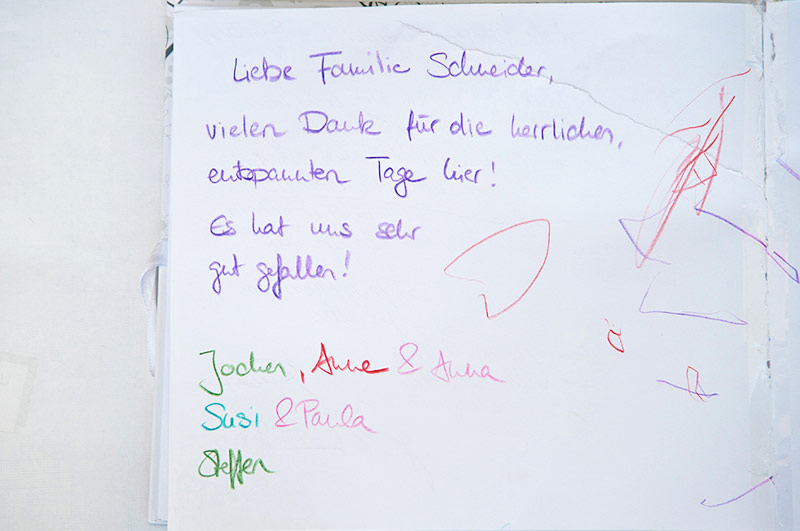 Liebe Familie Schneider,
vielen Dank für die herrlichen,
entspannten Tage hier!
Es hat uns sehr
gut gefallen!
Jochen, Anne & Anna
Susi & Paula
Steffen